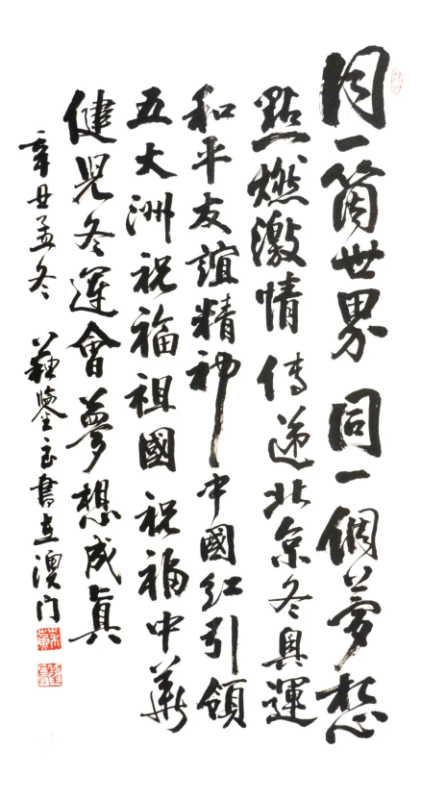 同一箇世界 同一個夢想
點燃激情 傳遞北京冬奧運
和平友誼精神 中國紅引領
五大洲祝福祖國 祝福中華
健兒冬運會夢想成真
辛丑孟冬 書在澳门